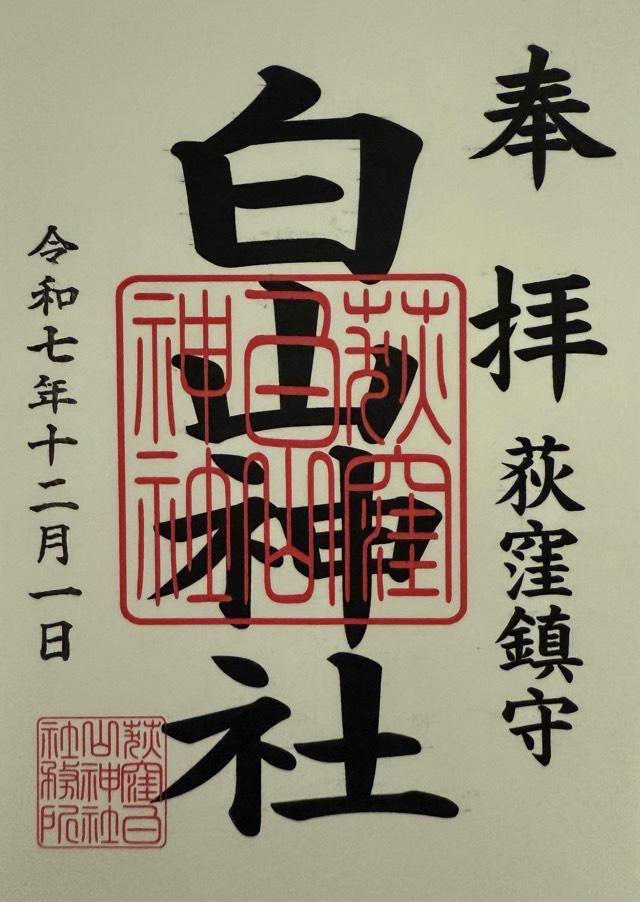 奉拝
荻窪鎮守
白山神社
荻窪
白山
神社
令和七年十二月一日
荻窪白
山神社
社務所